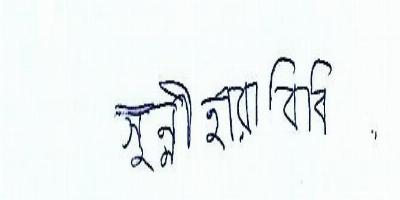 মুন্নীহারা বিবি